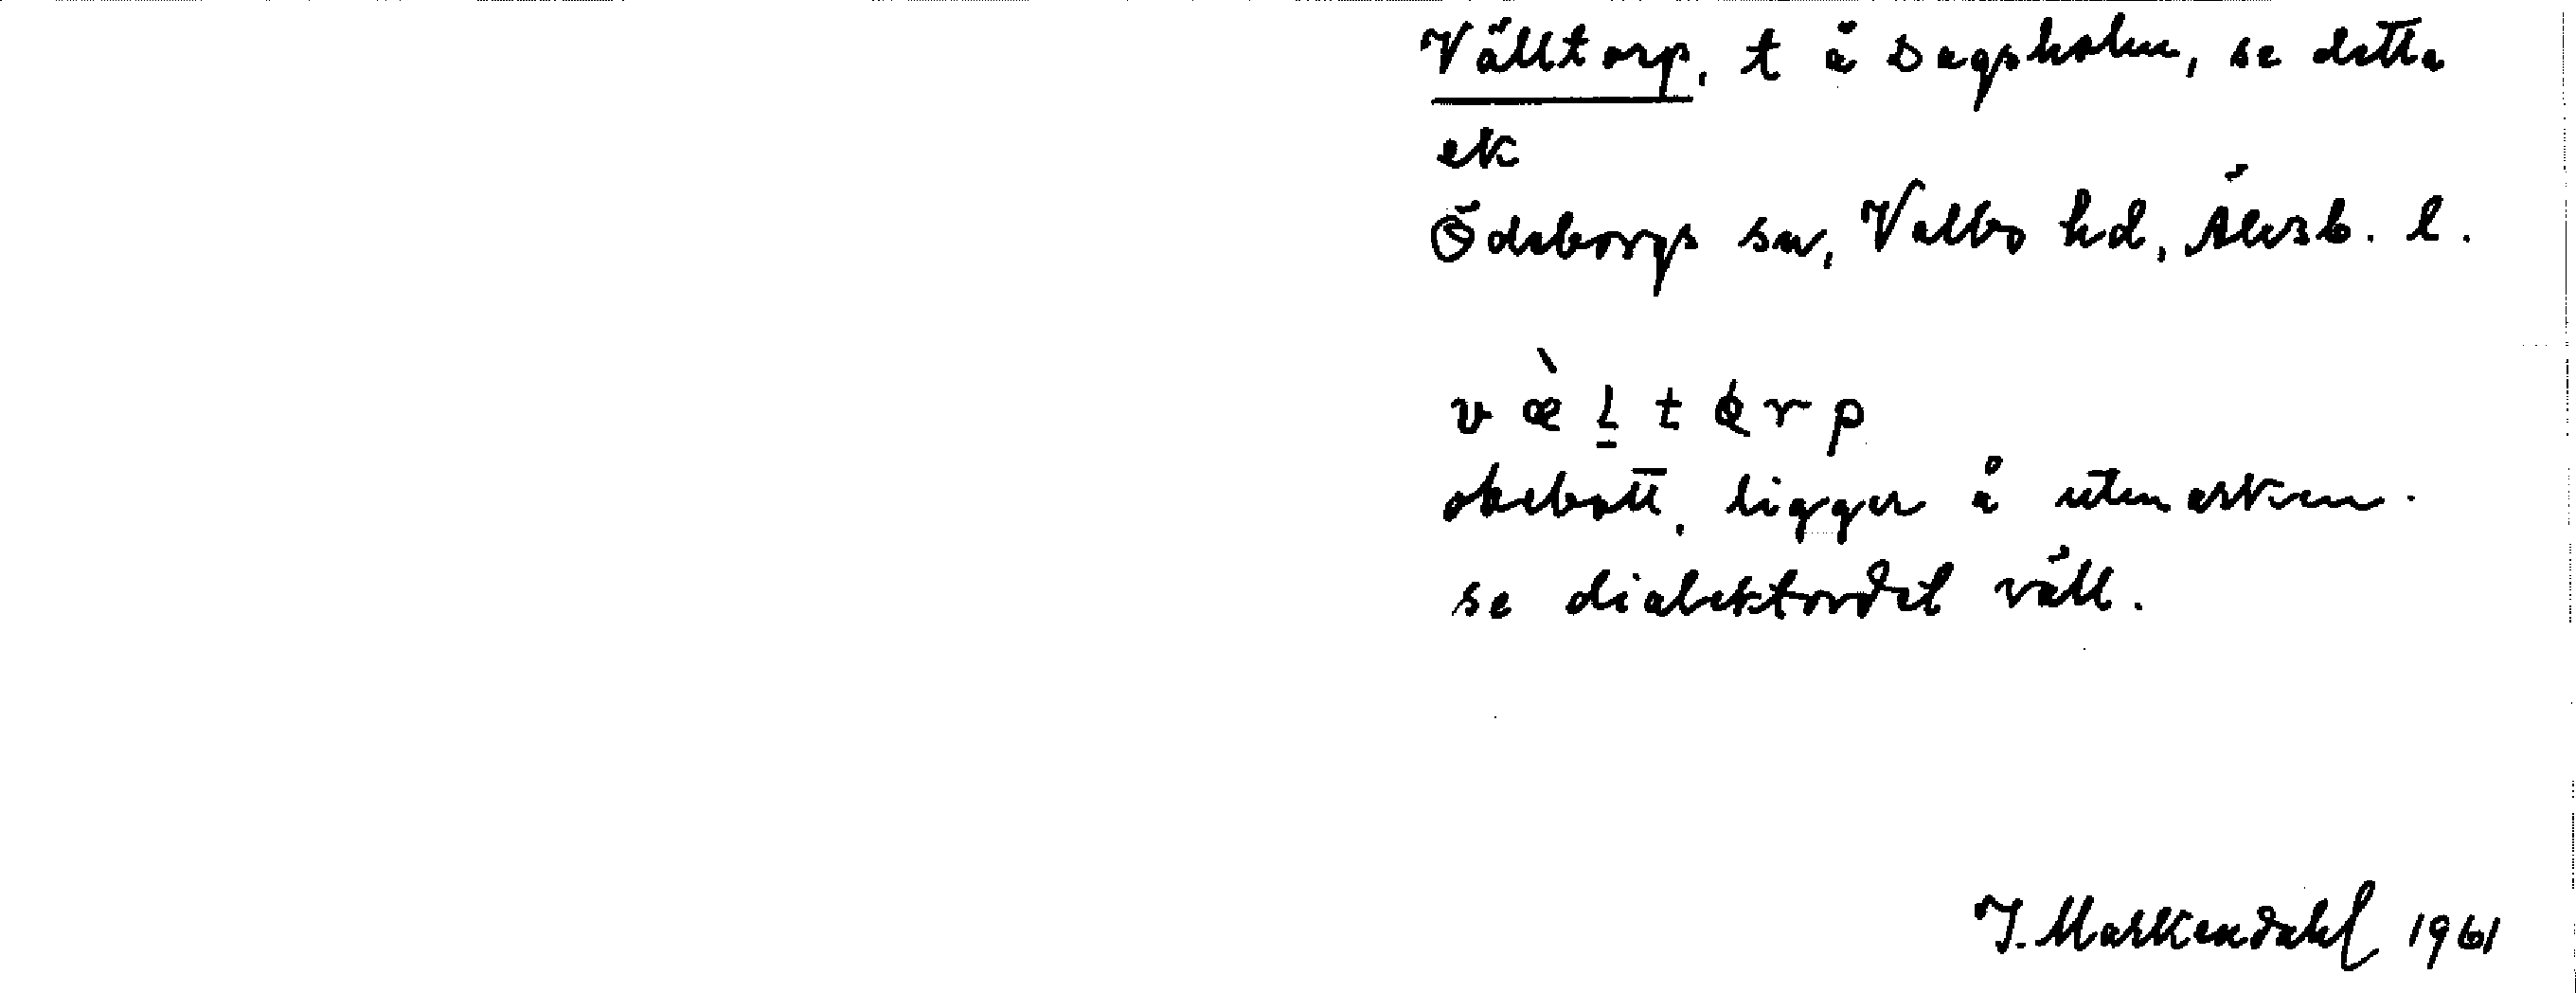 Välltorp, t å Dagsholm, se detta
ek
Ödeborgs sn, Valbo hd, Älvsb. l.
v æ̀ l̠ t ø r p
obebott, ligger å utmarken.
se dialektordet väll.
I. Markendahl 1961